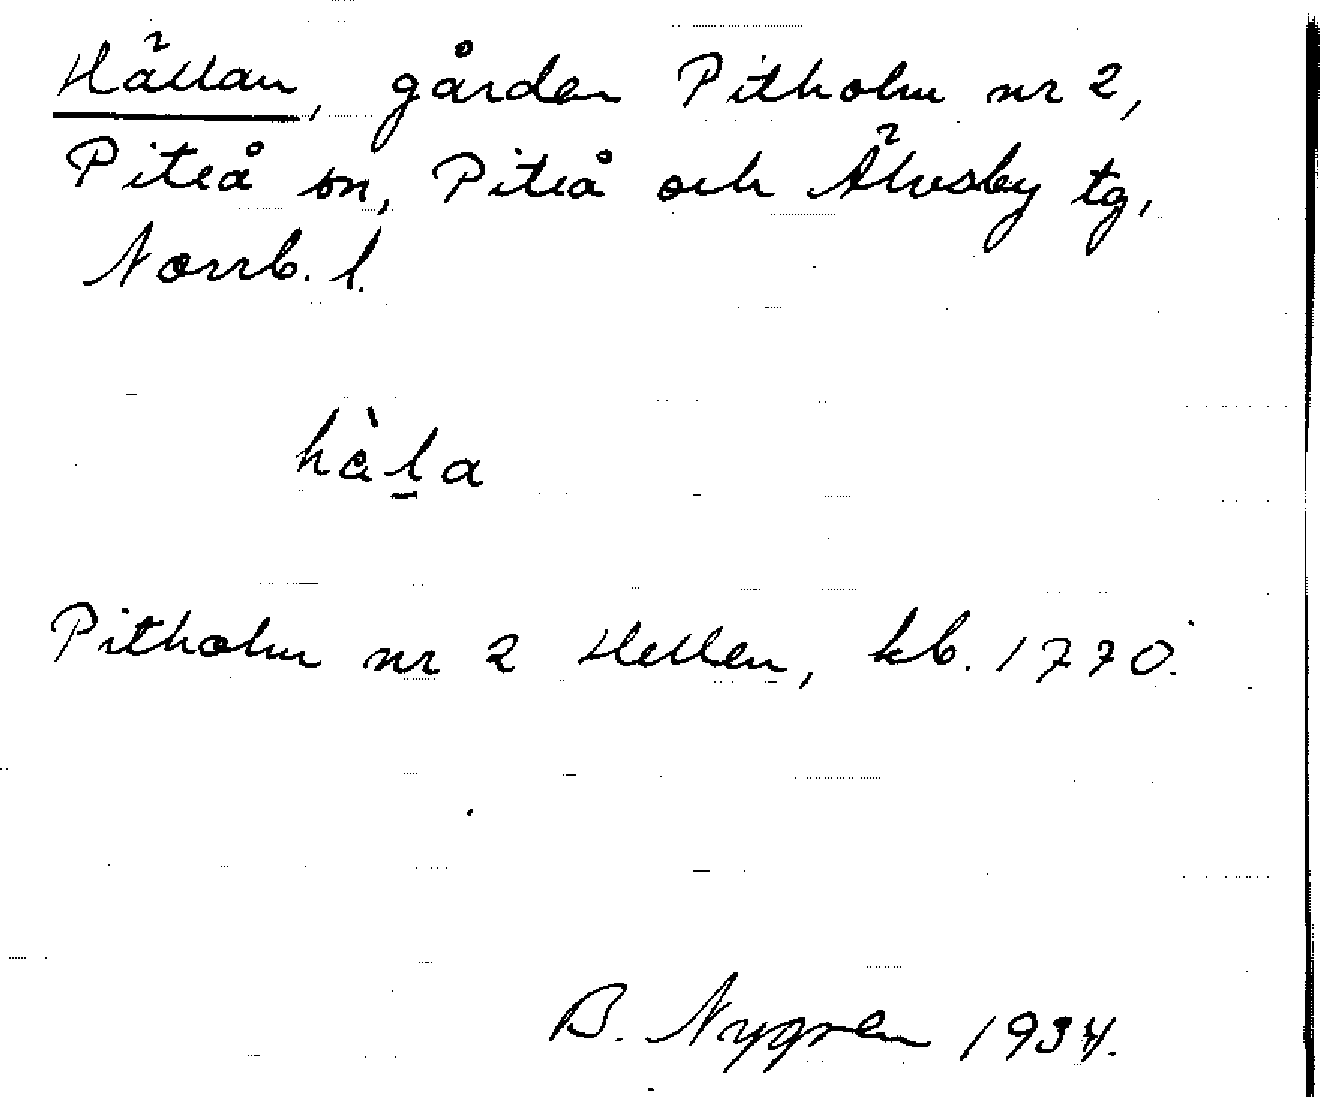 Hällan, gården Pitholm nr 2,
Piteå sn, Piteå och Älvsby tg,
Norrb. l.
hàl̠a
Pitholm nr 2 Hellen, kb. 1770.
B. Nygren 1934.